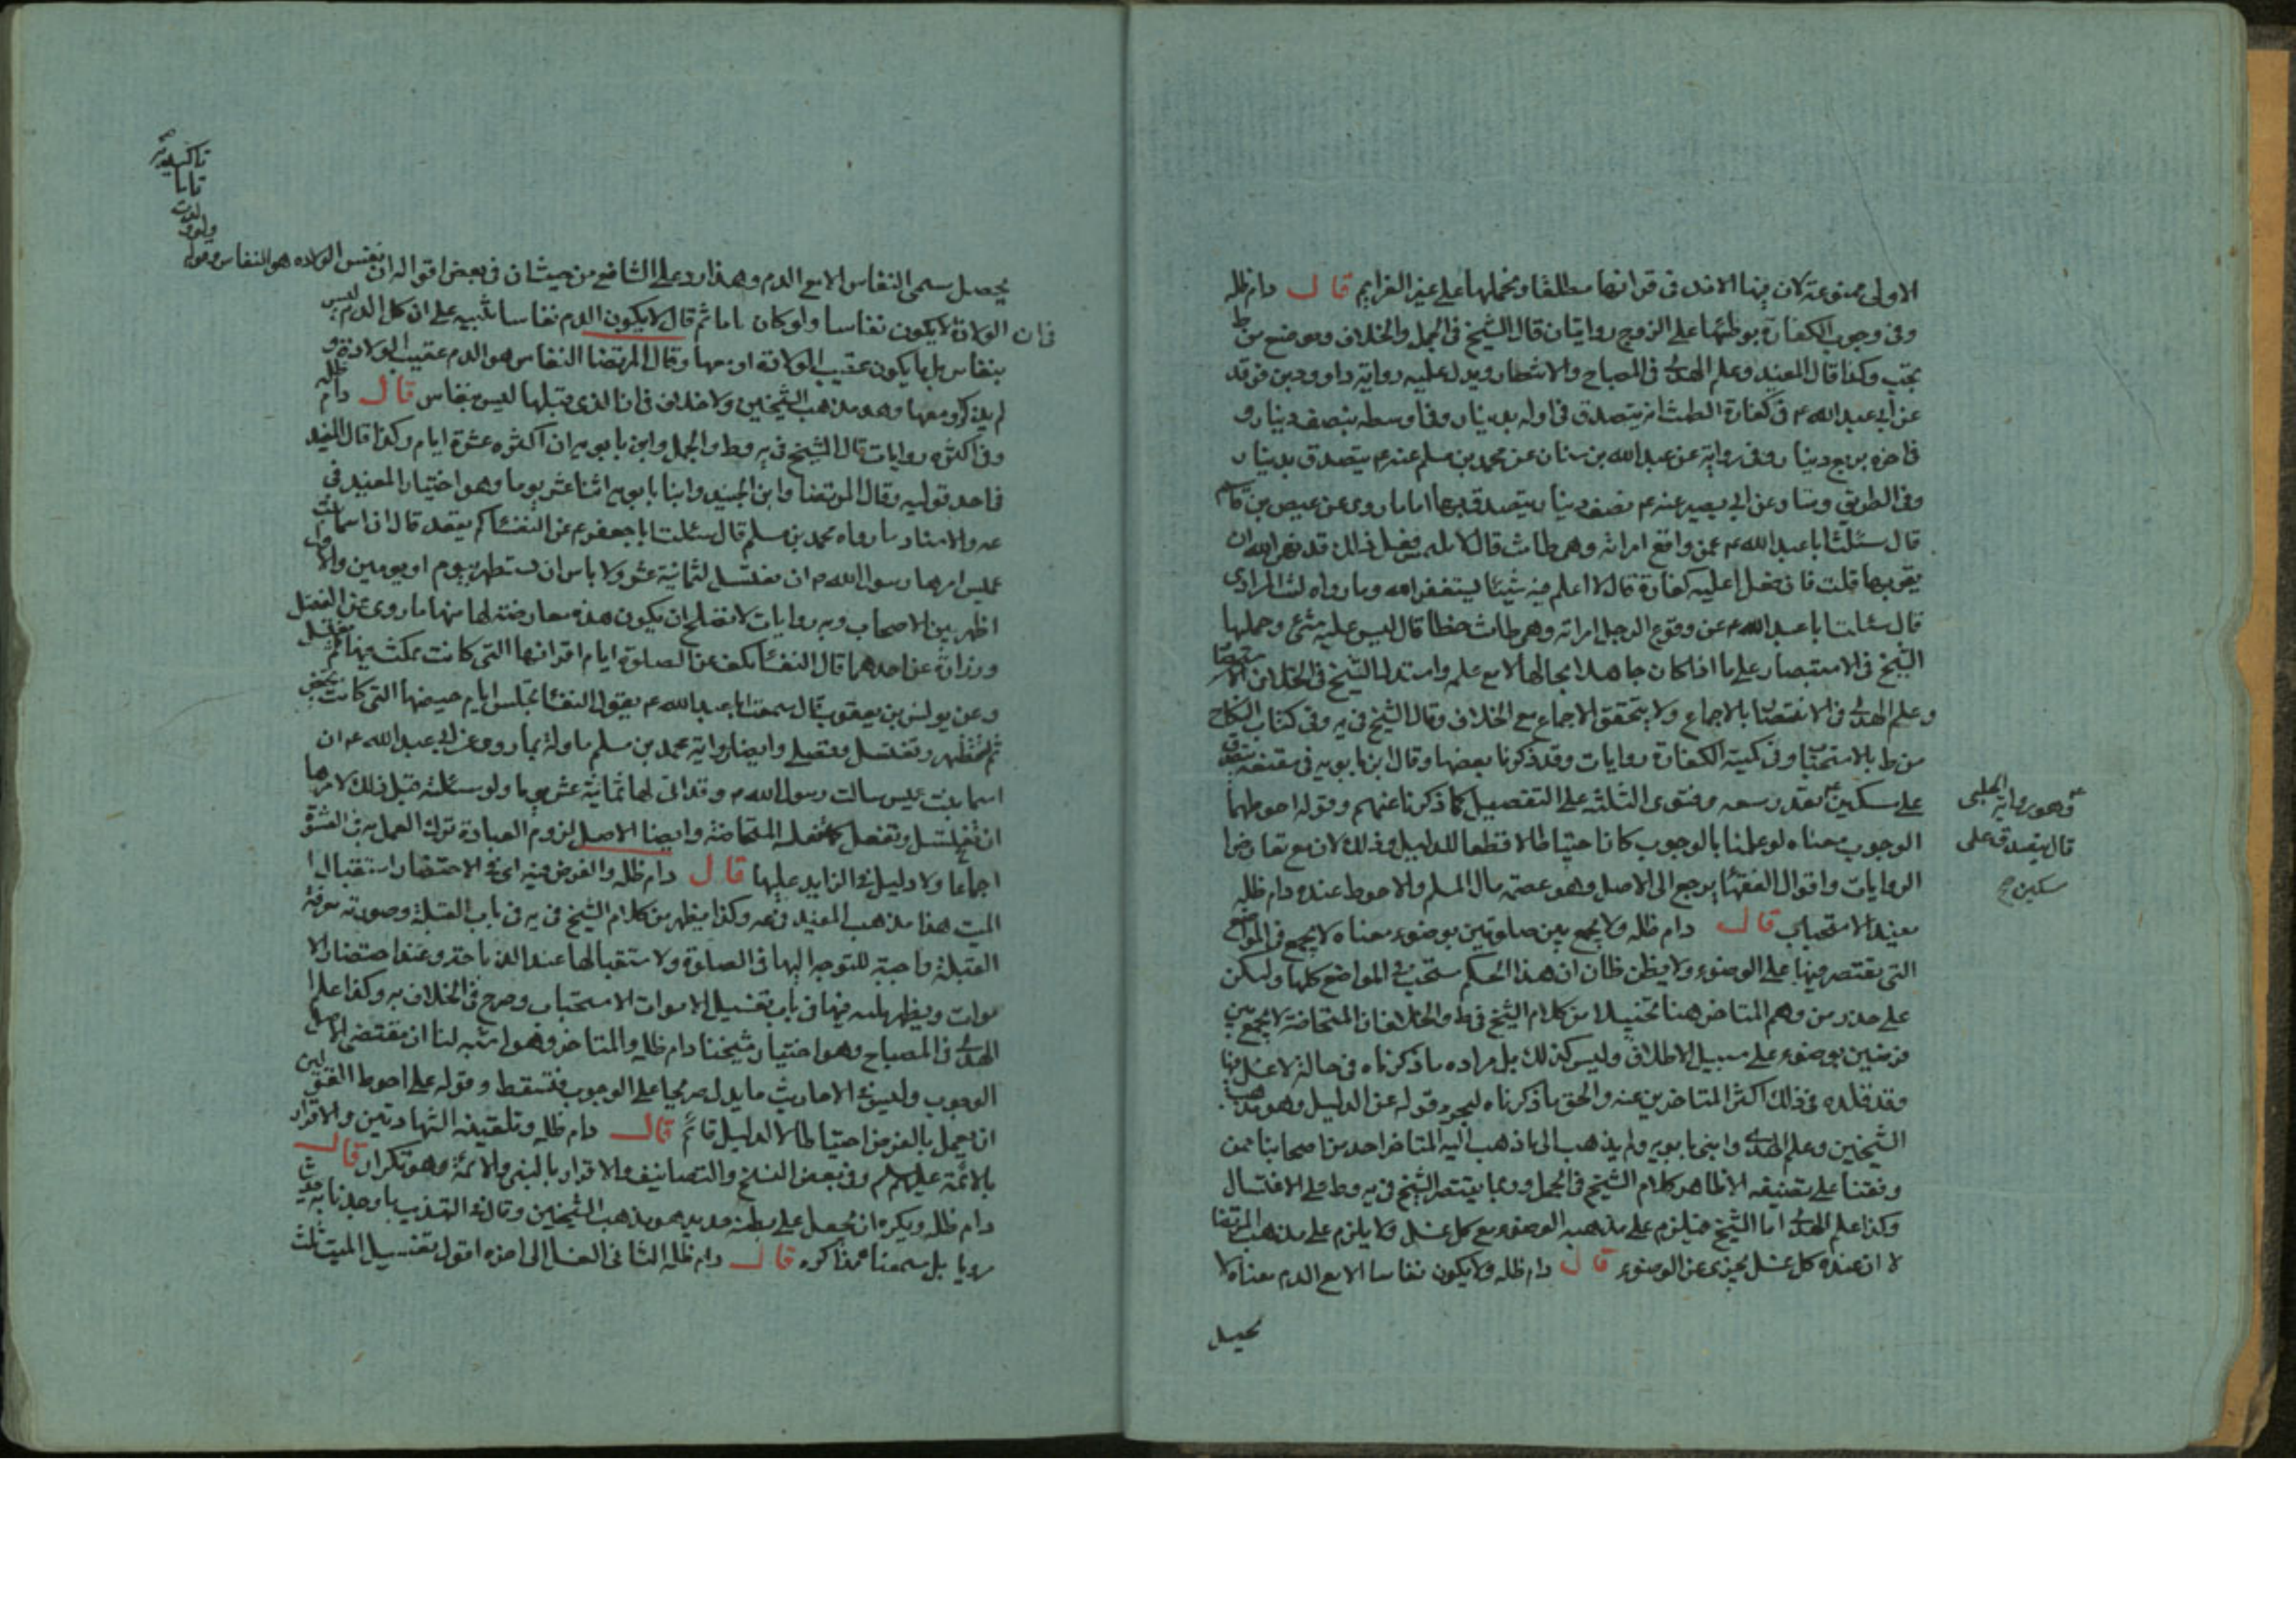 الاولى ممنوعة لان فيها الاذن فى قرائتها مطلقا ونحملها على غير العزايم قال دام ظله
وفى وجوب الكفارة بوطئها على الزوج روايتان قال الشيخ فى الجمل والخلاف وموضع من ط
يجب وكذا قال المفيد وعلم الهدى فى المصباح والانتصار ويدل عليه رواية داود بن فرقد
عن ابى عبد الله ع فى كفارة الطمث انه يتصدق فى اوله بدينار وفى اوسطه بنصف دينار و
فى اخره بربع دينار وفى رواية عن عبد الله بن سنان عن محمد بن مسلم عنه ع يتصدق بدينار
وفى الطريق وعن ابى بصير عنه ع نصف دينار يتصدق بها اما ما روى عن عيص بن قاسم
قال سئلت ابا عبد الله ع عن واقع امراته وهى طامث قال لا يلتمس فعل ذلك قد نهى الله ان
يقربها قلت فان فعل اعليه كفارة قال لا اعلم فيه شيئا يستغفر الله وما رواه ليث المرادى
قال سئلت ابا عبد الله ع عن وقوع الرجل امراته وهى طامث خطأ قال ليس عليه شئ وحملها
الشيخ فى الاستبصار على ما اذا كان جاهلا بحالها لا مع علمه واستدل الشيخ فى الخلاف
وعلم الهدى فى الانتصار بالاجماع ولا يتحقق الاجماع مع الخلاف وقال الشيخ فى يه وفى كتاب النكاح
من ط بالاستحباب وفى كمية الكفارة روايات وقد ذكرنا بعضها وقال ابن بابويه فى مقنعه يتصدق
على مسكين بقدر سعه وفتوى الثلثة على التفصيل كما ذكرنا عنهم وقوله احوطهما
الوجوب معناه لو عملنا بالوجوب كان احتياطا لا قطعا للدليل وذلك لان مع تعارض
الروايات واقوال الفقها يرجع الى الاصل وهو عصمة مال المسلم والاحوط عنده دام ظله
يفيد الاستحباب قال دام ظله ولا يجمع بين صلوتين بوضوء معناه لا يجمع فى المواضع
التى يقتصر فيها على الوضوء ولا يظن ظان ان هذا الحكم مستحب فى المواضع كلها وليكن
على حذر من وهم المتاخر هنا تخيلا من كلام الشيخ فى ط والخلاف ان المستحاضة لا تجمع بين
فرضين بوضوء على سبيل الاطلاق وليس كذلك بل مراده ما ذكرناه فى حالة لا غسل فيها
وقد قلده فى ذلك اكثر المتاخرين عنه والحق ما ذكرناه لتجرد قوله عن الدليل وهو مذهب
الشيخين وعلم الهدى وابنى بابويه ولم يذهب الى ما ذهب اليه المتاخر احد من اصحابنا ممن
وقفنا على تصنيفه الا ظاهر كلام الشيخ فى الجمل وربما يقتصر الشيخ فى يه وط على الاغتسال
وكذا علم الهدى اما الشيخ فيلزم على مذهبه الوضوء مع كل غسل ولا يلزم على مذهب المرتضى
لا ان عنده كل غسل يجزى عن الوضوء قال دام ظله ولا يكون نفاسا الا مع الدم معناه لا
يحصل
وهو رواية الحلبى
قال يتصدق على
مسكين
يحصل سمى النفاس الا مع الدم وهذا رد على الشافعى من حيث ان فى بعض اقواله ان نفس الولادة هو النفاس وقوله
ولو ولدت تاما
فان الولادة لا يكون نفاسا ولو كان تاما ثم قال لا يكون الدم نفاسا تنبيه على ان كل الدم ليس
بنفاس بل ما يكون عقيب الولادة او معها وقال المرتضى النفاس هو الدم عقيب الولادة و
لم يذكر ومعها وهو مذهب الشيخين ولا خلاف فى ان الذى قبلها ليس بنفاس قال دام ظله
وفى اكثره روايات قال الشيخ فى يه وط والجمل وابن بابويه ان اكثره عشرة ايام وكذا قال المفيد
فى احد قوليه وقال المرتضى وابن الجنيد وابنا بابويه اثنا عشر يوما وهو اختيار المفيد فى
عه والاستناد ما رواه محمد بن مسلم قال سئلت ابا جعفر ع عن النفسا كم يقعد قال ان اسما بنت
عميس امرها رسول الله ص ان تغتسل لثمانية عشر ولا باس ان تستظهر بيوم او يومين والاول
اظهر بين الاصحاب وبه روايات لا تصلح ان يكون هذه معارضة لها منها ما روى عن الفضل
وزرارة عن احدهما قال النفسا تكف عن الصلوة ايام اقرائها التى كانت تمكث فيها ثم تغتسل
وعن يونس بن يعقوب قال سمعت ابا عبد الله ع يقول النفسا تجلس ايام حيضها التى كانت تحيض
ثم تستظهر وتغتسل وتصلى وايضا رواية محمد بن مسلم ماولة بما روى عن ابى عبد الله ع ان
اسما بنت عميس سالت رسول الله ص وقد اتى لها ثمانية عشر يوما ولو سئلته قبل ذلك لامرها
ان تغتسل وتفعل كما تفعله المستحاضة وايضا الاصل لزوم العبادة ترك العمل به فى العشرة
اجماعا ولا دليل فى الزايد عليها قال دام ظله والفرض فيه اى فى الاحتضار استقبال
الميت هذا مذهب المفيد فى عه وكذا يظهر من كلام الشيخ فى يه فى باب القبلة وصورته معرفة
القبلة واجبة للتوجه اليها فى الصلوة ولاستقبالها عند الذباحة وعند احتضار الا
موات ويظهر منه فيها فى باب تغسيل الاموات الاستحباب وصرح فى الخلاف به وكذا علم
الهدى فى المصباح وهو اختيار شيخنا دام ظله والمتاخر وهو اشبه لنا ان مقتضى الاصل
الوجوب وليس فى الاحاديث ما يدل صريحا على الوجوب فتسقط وقوله على احوط القولين
ان يعمل بالفرض احتياطا لا لدليل قائم قال دام ظله وتلقينه الشهادتين والاقرار
بالائمة عليهم السلم وفى بعض النسخ والتصانيف والاقرار بالنبى والائمة وهو تكرار قال
دام ظله ويكره ان يجعل على بطنه حديد هو مذهب الشيخين وقال فى التهذيب ما وجدنا به حديثا
مرويا بل سمعناه مذاكرة قال دام ظله الثانى الغسل الى اخره اقول تغسيل الميت ثلث